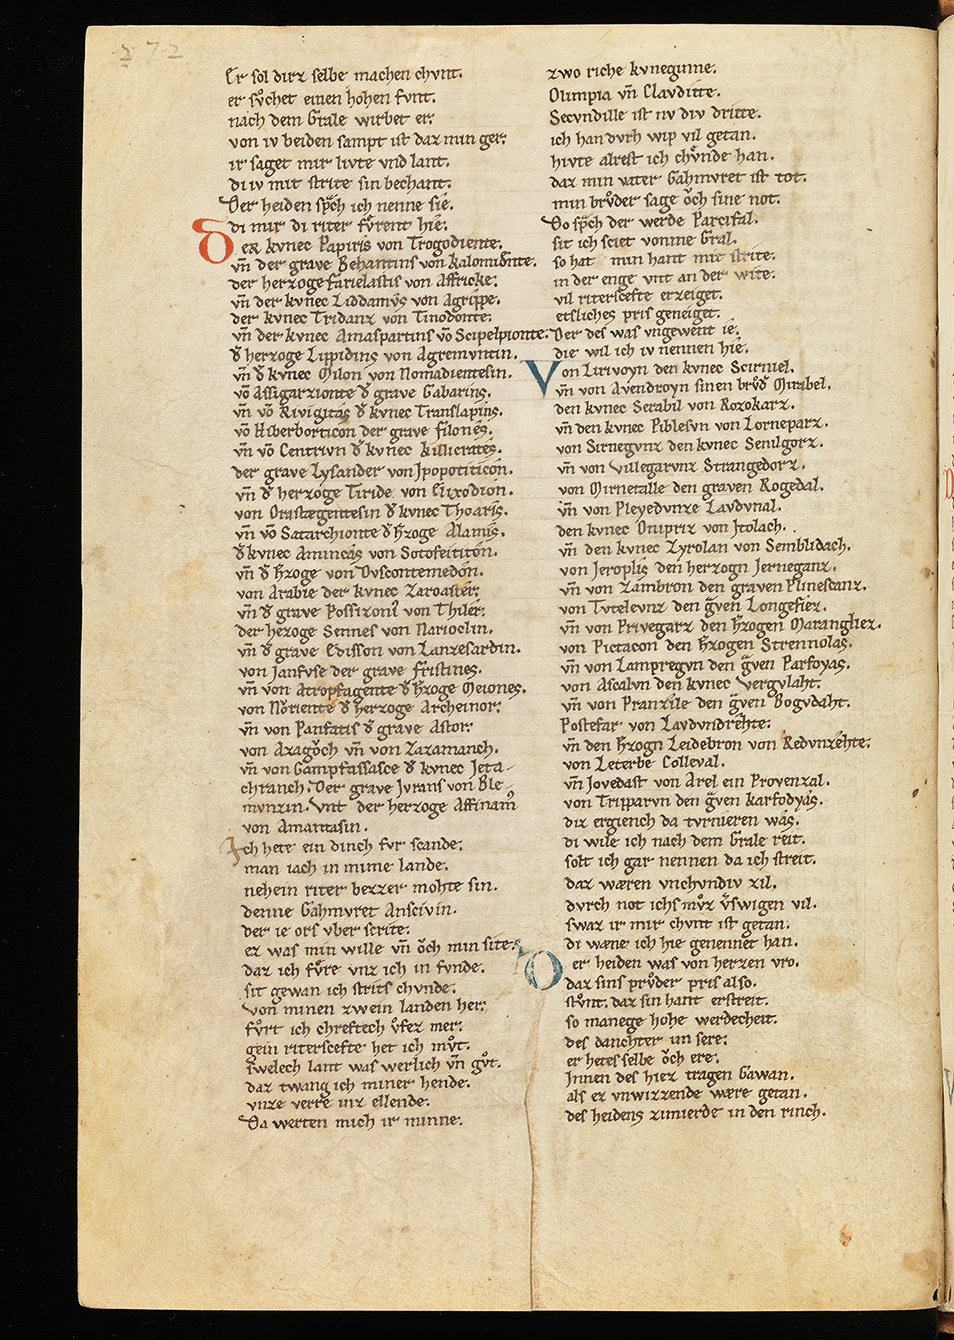 272
Er sol dirz selbe machen chvnt.
er sv̊chet einen hohen fvnt.
nach dem Grale wirbet er.
von iv beiden sampt ist daz min ger.
ir saget mir livte vnd lant.
di iv mit strite sin bechant.
Der heiden sp̄ch ich nenne sie.
di mir di riter fv̊rent hie.
Der kvnec Papiris von Trogodiente.
vn̄ der grave Behantins von kalomidente.
der herzoge farielastis von Affricke.
vn̄ der kvnec Liddamvs von Agrippe.
der kvnec Tridanz von Tinodonte.
vn̄ der kvnec Amaspartins vō Scipelpionte.
d̄ herzoge Lippidins von Agremvntin.
vn̄ d̄ kvnec Milon von Nomadientesin.
vō Assigarzionte d̄ grave Gabarins.
vn̄ vō Rivigitas d̄ kvnec Translapins.
vō Hiberborticon der grave filones.
vn̄ vō Centrivn d̄ kvnec killicrates.
der grave Lysander von Jpopotiticon.
vn̄ d̄ herzoge Tiride von Elixodion.
von Orastegentesin d̄ kvnec Thoaris.
vn̄ vō Satarchionte d̄ h̄zoge Alamis.
d̄ kvnec Amincas von Sotofeititon.
vn̄ d̄ h̄zoge von Dvscontemedon.
von Arabie der kvnec Zaroaster.
vn̄ d̄ grave Possizoni᷒ von Thiler.
der hezoge Sennes von Narioclin.
vn̄ d̄ grave Edisson von Lanzesardin.
von Janfvse der grave fristines.
vn̄ von Atropfagente d̄ h̄zoge Meiones.
von Noriente d̄ herzoge Archeinor.
vn̄ von Panfatis d̄ grave Astor.
von Azagǒch vn̄ von Zazamanch.
vn̄ von Gampfassasce d̄ kvnec Jeta-
chranch. Der grave Jvrans von Ble
mvnzin. Vnt der herzoge Affinam᷒
von Amantasin.
Jch hete ein dinch fvr scande.
man iach in mime lande.
nehein riter bezzer mohte sin.
denne Gahmvret Anscivin.
der ie ors vber scrite.
ez was min wille vn̄ ǒch min site.
daz ich fv̊re vnz ich in fvnde.
sit gewan ich strits chvnde.
von minen zwein landen her.
fv̊rt ich chreftech v̊fez mer.
gein riterscefte het ich mv̊t.
swelech lant was werlich vn̄ gv̊t.
daz twang ich miner hende.
vnze verre inz ellende.
Da werten mich ir minne.
zwo riche kvneginne.
Olimpia vn̄ Clavditte.
Secvndille ist nv div dritte.
ich han dvrh wip vil getan.
hivte alrest ich chv̊nde han.
daz min vater Gahmvret ist tot.
min brv̊der sage ǒch sine not.
Do sp̄ch der werde Parcifal.
sit ich sciet vonme Gral.
so hat min hant mit strite.
in der enge vnt an der wite.
vil riterscefte erzeiget.
etsliches pris geneiget.
Der des was vngewent ie.
die wil ich iv nennen hie.
Von Lirivoyn den kvnec Scirniel.
vn̄ von Avendroyn sinen brv̊d̄ Mirabel.
den kvnec Serabil von Rozokarz.
vn̄ den kvnec Piblesvn von Lorneparz.
von Sirnegvnz den kvnec Senilgorz.
vn̄ von villegarvnz Strangedorz.
von Mirnetalle den graven Rogedal.
vn̄ von Pleyedvnze Lavdvnal.
den kvnec Onipriz von Jtolach.
vn̄ den kvnec Zyrolan von Semblidach.
von Jeroplis den herzogn Jerneganz.
vn̄ von Zambron den graven Plinescanz.
von Tvtelevnz den ḡven Longefiez.
vn̄ von Privegarz den h̄zogen Marangliez.
von Pictacon den h̄zogen Strennolas.
vn̄ von Lampregvn den ḡven Parfoyas.
von Ascalvn den kvnec vergvlaht.
vn̄ von Pranzile den ḡven Bogvdaht.
Postefar von Lavdvndrehte.
vn̄ den h̄zogn Leidebron von Redvnzehte.
von Leterbe Colleval.
vn̄ Jovedast von Arel ein Provenzal.
von Tripparvn den ḡven karfodyas.
diz ergiench da tvrnieren was.
di wile ich nach dem Grale reit.
solt ich gar nennen da ich streit.
daz wæren vnchvndiv zil.
dvrch not ichs mv̊z v̄swigen vil.
swaz ir mir chvnt ist getan.
di wæne ich hie genennet han.
Der heiden was von herzen vro.
daz sins prv̊der pris also.
stv̊nt. daz sin hant erstreit.
so manege hohe werdecheit.
des danchter im sere.
er hetes selbe ǒch ere.
Jnnen des hiez tragen Gawan.
als ez vnwizzende wære getan.
des heidens zimierde in den rinch.